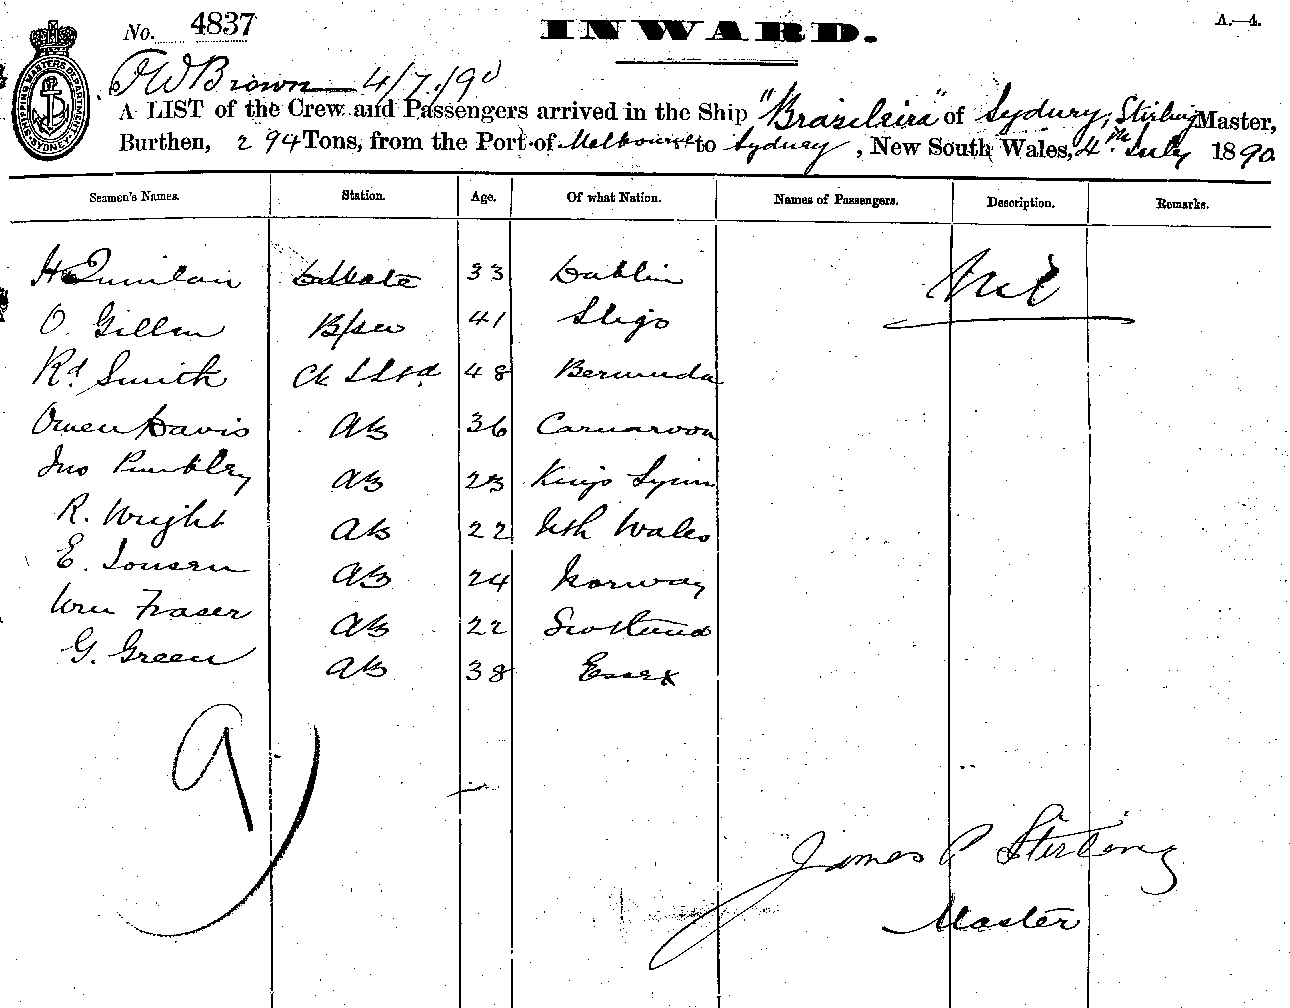 No. 4837
INWARD.
A.—4.
SHIPPING MASTERS DEPARTMENT SYDNEY
JW Brown 4/7/90
A LIST of the Crew and Passengers arrived in the Ship "Brasileira" of Sydney, Stirling Master,
Burthen, 294 Tons, from the Port of Melbourne to Sydney, New South Wales, 4th July 1890
Seamen's Names. Station. Age. Of what Nation. Names of Passengers. Description. Remarks.
H Quinlan Mate 33 Dublin Nil
O. Gillen B/sen 41 Sligo
Rd Smith Ck & Std 48 Bermuda
Owen Davis AB 36 Carnarvon
Jno AB 23 Kings Lynn
R. Wright AB 22 Nth Wales
E. Jonsen AB 24 Norway
Wm Fraser AB 22 Scotland
G. Green AB 38 Essex
9
James P Stirling
Master